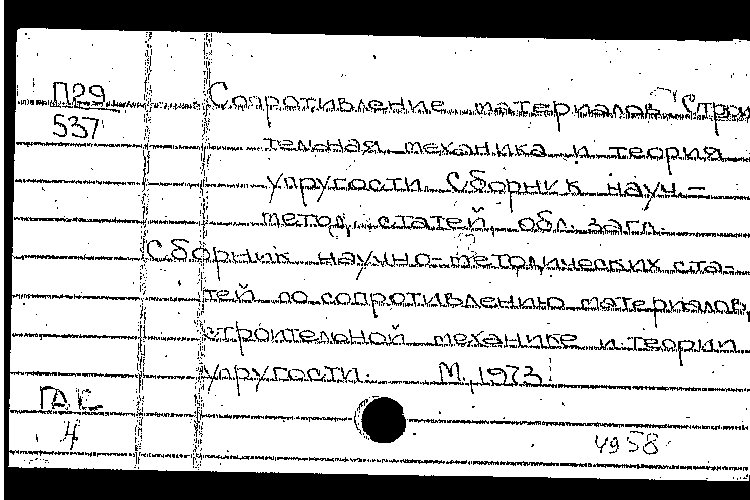 П29
537
Сопротивление материалов. Строи
тельная механика и теория
упругости. Сборник науч.-
метод. статей, обл. загл.
Сборник научно-методических ста-
тей по сопротивлению материалов,
строительной механике и теории
упругости. М., 1973.
4
4958